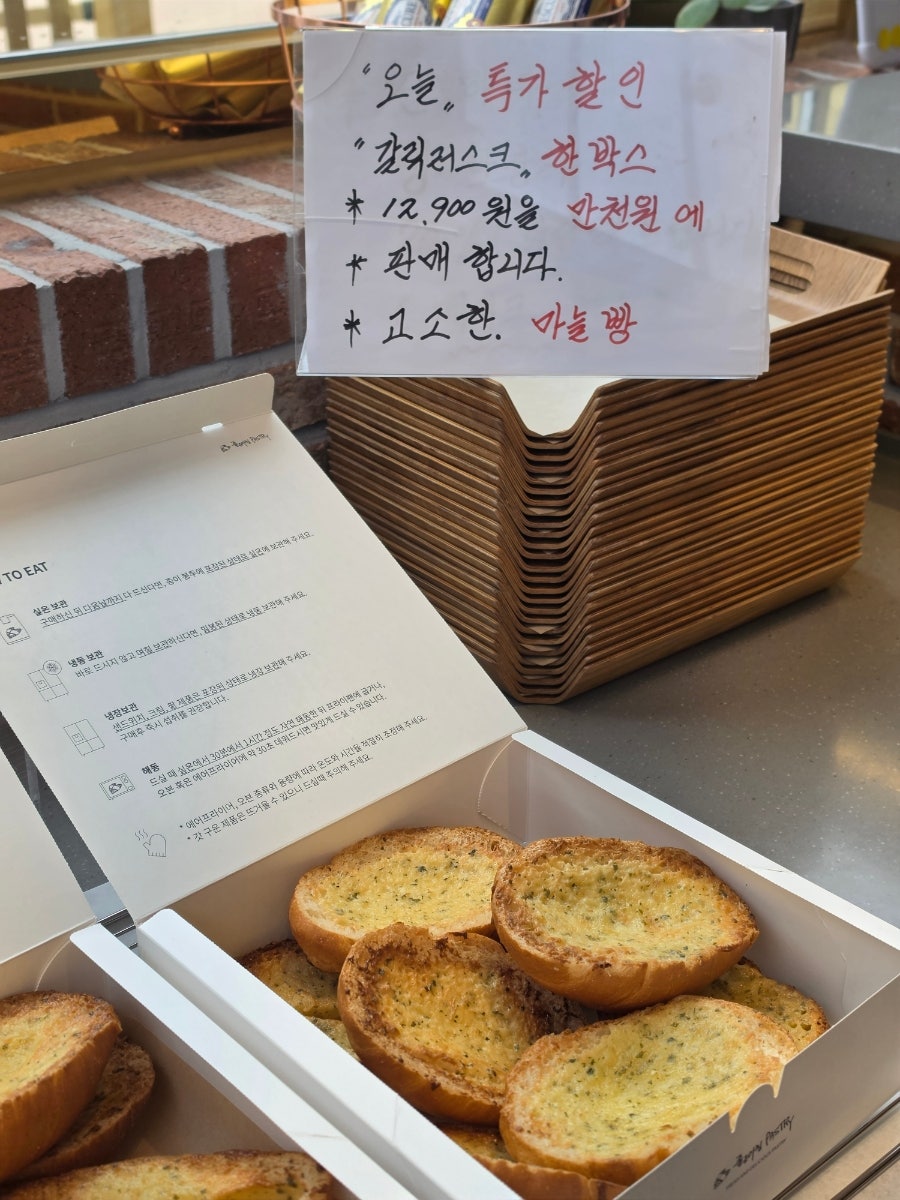 "오늘" 특가 할인
"갈릭러스크" 한박스
* 12,900원을 만천원에
* 판매 합니다.
* 고소한. 마늘빵
Happy PASTRY
TO EAT
실온 보관
구매하신 뒤 다음날까지 다 드신다면, 종이 봉투에 포장된 상태로 실온에 보관해 주세요.
냉동 보관
바로 드시지 않고 며칠 보관하신다면, 밀봉된 상태로 냉동 보관해 주세요.
냉장보관
샌드위치, 크림, 팥 제품은 포장된 상태로 냉장 보관해 주세요.
구매후 즉시 섭취를 권장합니다.
해동
드실 때 실온에서 30분에서 1시간 정도 자연 해동한 뒤 프라이팬에 굽거나,
오븐 혹은 에어프라이어에 약 30초 데워드시면 맛있게 드실 수 있습니다.
* 에어프라이어, 오븐 종류와 용량에 따라 온도와 시간을 적절히 조정해 주세요.
* 갓 구운 제품은 뜨거울 수 있으니 드실때 주의해 주세요.
Happy PASTRY